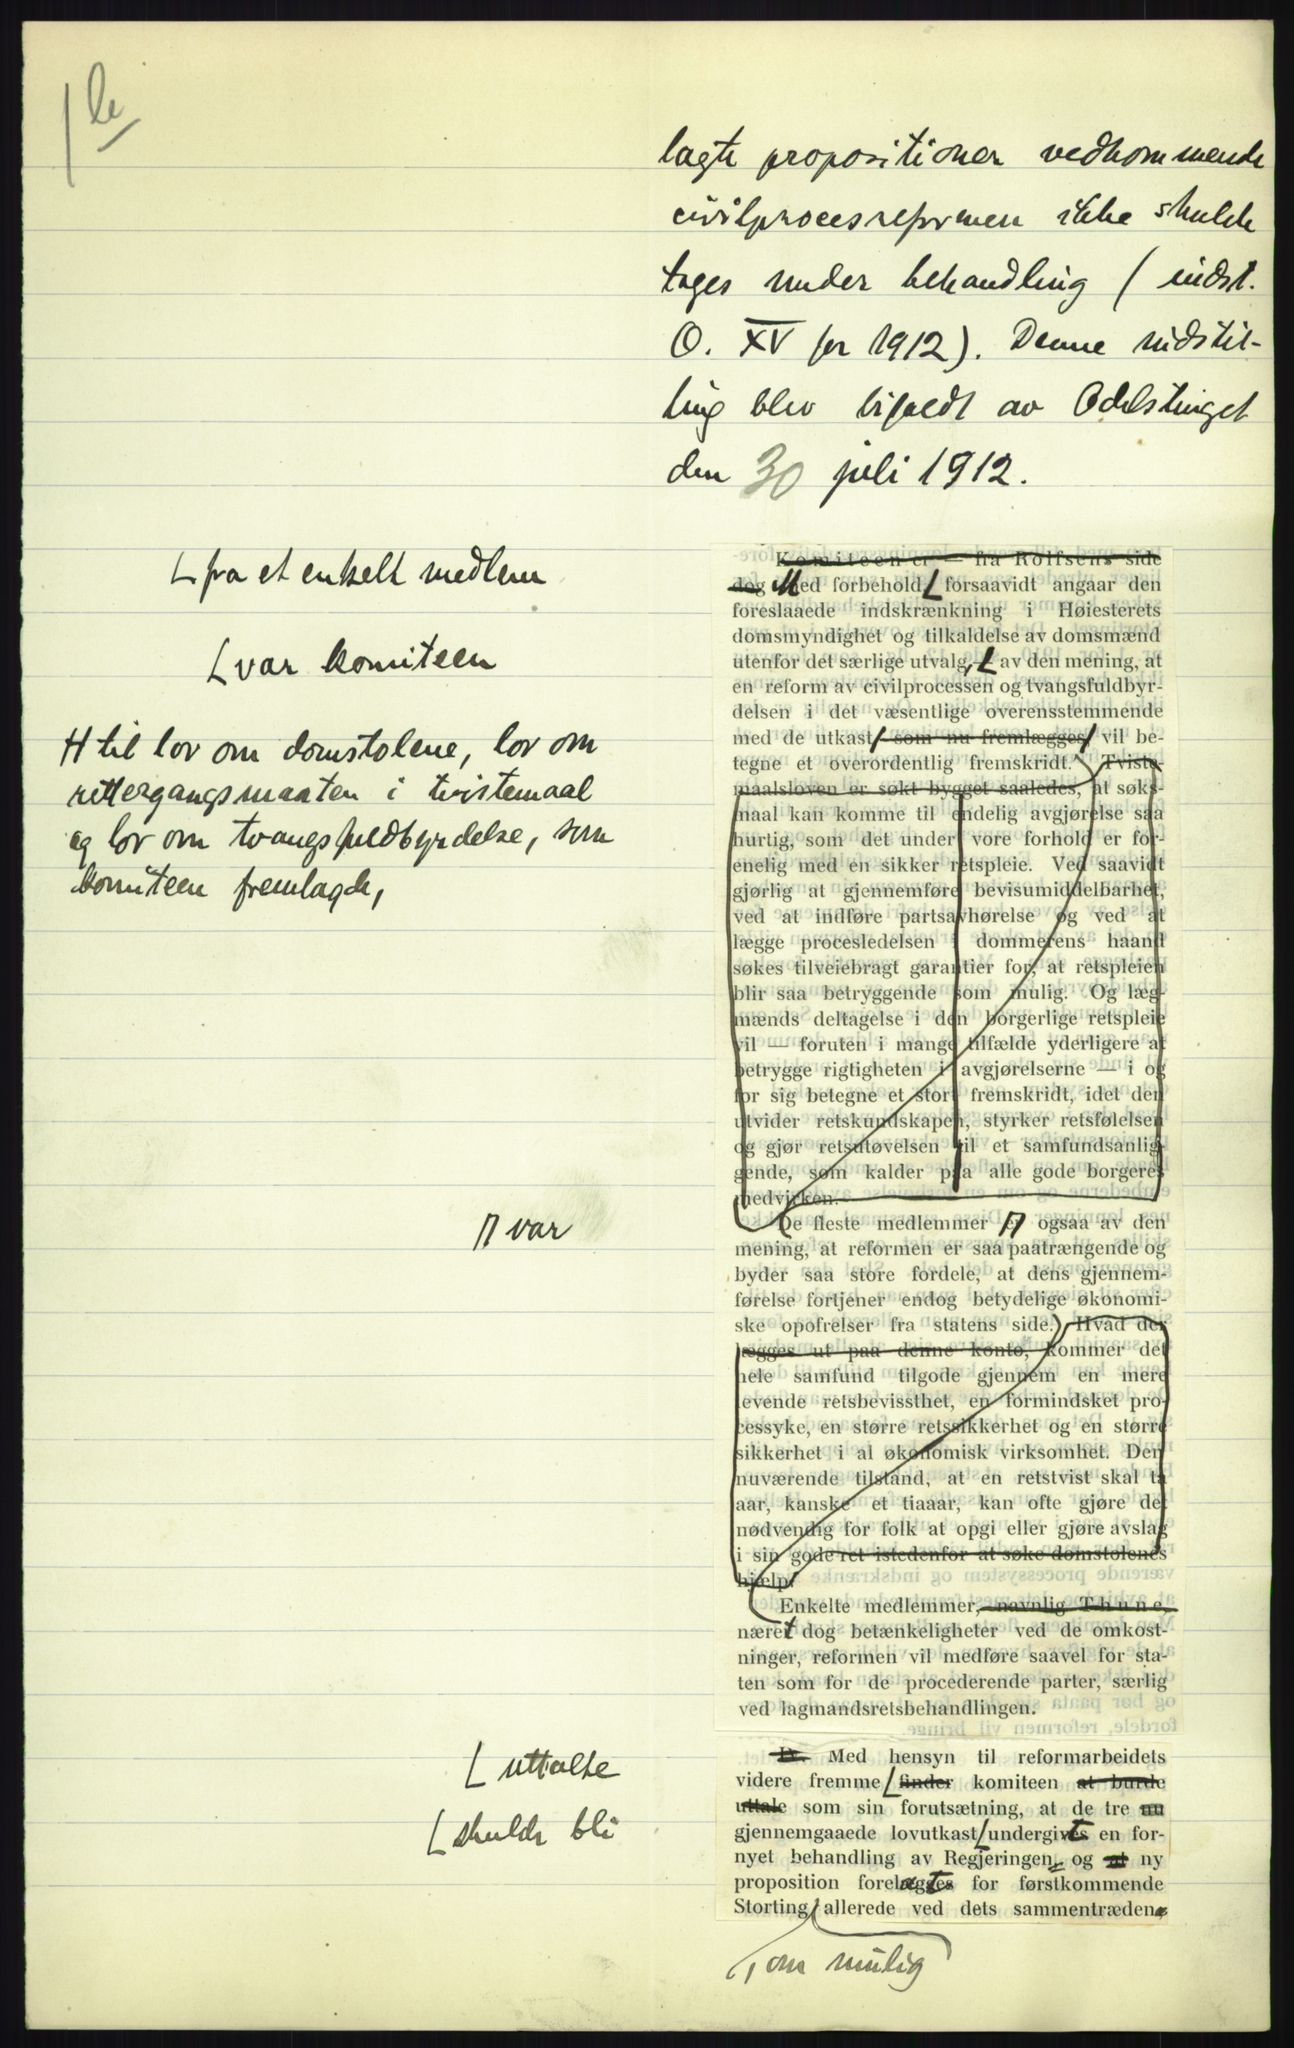 1 le
lagte propositioner vedkommende
civilprocesreformen ikke skulde
tages under behandling (indst.
O. XV for 1912). Denne indstil-
ling blev bifaldt av Odelstinget
den 30 juli 1912.
fra et enkelt medlem
var komiteen
H til lov om domstolene, lov om
rettergangsmaaten i tvistemaal
og lov om tvangsfuldbyrdelse, som
komiteen fremlagde,
Komiteen er — fra Rolfsens side
dog Med forbehold forsaavidt angaar den
foreslaaede indskrænkning i Høiesterets
domsmyndighet og tilkaldelse av domsmænd
utenfor det særlige utvalg, av den mening, at
en reform av civilprocessen og tvangsfuldbyr-
delsen i det væsentlige overensstemmende
med de utkast som nu fremlægges vil be-
tegne et overordentlig fremskridt. Tviste-
maalsloven er søkt bygget saaledes, at søks-
maal kan komme til endelig avgjørelse saa
hurtig, som det under vore forhold er for-
enelig med en sikker retspleie. Ved saavidt
gjørlig at gjennemføre bevisumiddelbarhet,
ved at indføre partsavhørelse og ved at
lægge procesledelsen i dommerens haand
søkes tilveiebragt garantier for, at retspleien
blir saa betryggende som mulig. Og læg-
mænds deltagelse i den borgerlige retspleie
vil — foruten i mange tilfælde yderligere at
betrygge rigtigheten i avgjørelserne — i og
for sig betegne et stort fremskridt, idet den
utvider retskundskapen, styrker retsfølelsen
og gjør retsutøvelsen til et samfundsanlig-
gende, som kalder paa alle gode borgeres
medvirken.
var
De fleste medlemmer er ogsaa av den
mening, at reformen er saa paatrængende og
byder saa store fordele, at dens gjennem-
førelse fortjener endog betydelige økonomi-
ske opofrelser fra statens side. Hvad der
lægges ut paa denne konto, kommer det
hele samfund tilgode gjennem en mere
levende retsbevissthet, en formindsket pro-
cessyke, en større retssikkerhet og en større
sikkerhet i al økonomisk virksomhet. Den
nuværende tilstand, at en retstvist skal ta
aar, kanske et tiaaar, kan ofte gjøre det
nødvendig for folk at opgi eller gjøre avslag
i sin gode ret istedenfor at søke domstolenes
hjælp.
Enkelte medlemmer, navnlig Thune,
næret dog betænkeligheter ved de omkost-
ninger, reformen vil medføre saavel for sta-
ten som for de procederende parter, særlig
ved lagmandsretsbehandlingen.
uttalte
skulde bli
Med hensyn til reformarbeidets
videre fremme finder komiteen at burde
uttale som sin forutsætning, at de tre nu
gjennemgaaede lovutkast undergives en for-
nyet behandling av Regjeringen og at ny
proposition forelagtes for førstkommende
Storting allerede ved dets sammentræden
, om mulig